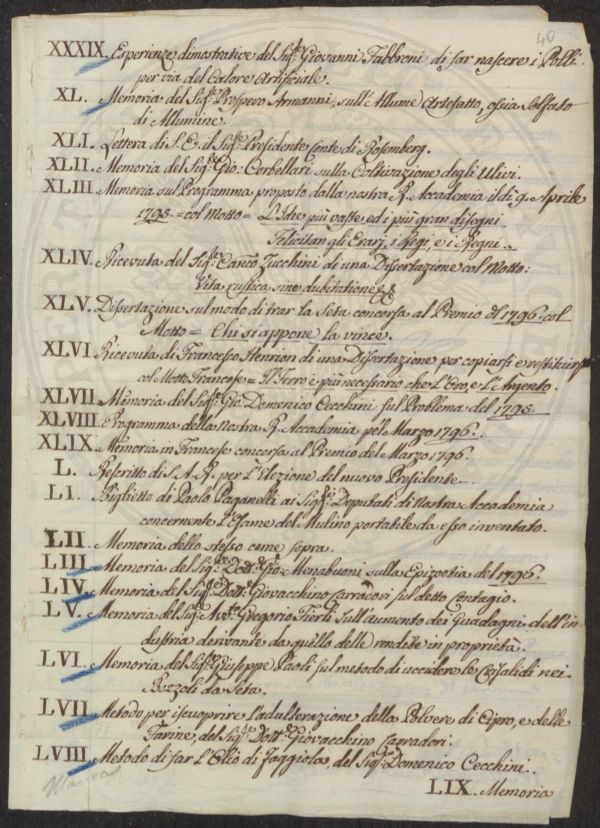 40
XXXIX. Esperienze dimostrative del Sig.re Giovanni Fabbroni di far nascere i Polli
per via del Calore Artificiale.
XL. Memoria del Sig.re Prospero Armanni, sull'Allume Artefatto, ossia Solfato
di Allumine.
XLI. Lettera di S. E. il Sig.re Presidente Conte di Rosemberg.
XLII. Memoria del Sig.re Gio: Corbellari sulla Coltivazione degli Ulivi.
XLIII. Memoria sul Programma proposto dalla nostra R. Accademia il dì 9. Aprile
1795. = col Motto = L'Idee più vaste ed i più gran disegni
Felicitan gli Erarj, i Regi, e i Regni.
XLIV. Ricevuta del Sig.re Can.co Zucchini di una Dissertazione col Motto:
Vita rustica sine dubitatione &c
XLV. Dissertazione sul modo di trar la Seta concorsa al Premio del 1796. col
Motto = Chi si appone la vince.
XLVI. Ricevuta di Francesco Henrion di una Dissertazione per copiarsi e restituirsi
col Motto Francese = Il Ferro è più necessario che l'Oro, e l'Argento.
XLVII. Memoria del Sig.re Gio: Domenico Cecchini sul Problema del 1795.
XLVIII. Programma della Nostra R. Accademia pel Marzo 1796.
XLIX. Memoria in Francese concorsa al Premio del Marzo 1796.
L. Rescritto di S. A. R. per l'Elezione del nuovo Presidente
LI. Biglietto di Paolo Paganelli ai Sig.ri Deputati di Nostra Accademia
concernente l'Esame del Mulino portatile da esso inventato.
LII. Memoria dello stesso come sopra.
LIII. Memoria del Sig.re Dott.e Gio: Menabuoni sulla Epizootia del 1796.
LIV. Memoria del Sig.re Dott.e Giovacchino Carradori sul detto Contagio.
LV. Memoria del Sig.re Avv.to Gregorio Fierli sull'aumento dei Guadagni dell'in
dustria derivante da quello delle rendite in proprietà.
LVI. Memoria del Sig.re Giuseppe Paoli sul metodo di uccidere le Crisalidi nei
Bozzoli da Seta.
LVII. Metodo per iscuoprire l'adulterazione della Polvere di Cipro, e delle
Farine, del Sig.re Dott.e Giovacchino Carradori.
LVIII. Metodo di far l'Olio di Faggiola, del Sig.re Domenico Cecchini.
LIX. Memoria